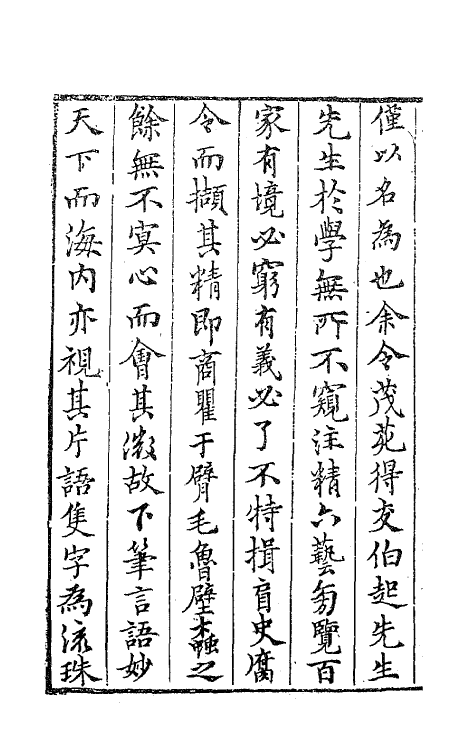 僅以名為也余令茂苑得交伯起先生
先生於學無所不窺注精六藝匈覽百
家有境必窮有義必了不特揖盲史腐
令而擷其精即商瞿于臂毛魯壁蠹之
餘無不寘心而會其微故下筆言語妙
天下而海內亦視其片語隻字為流珠